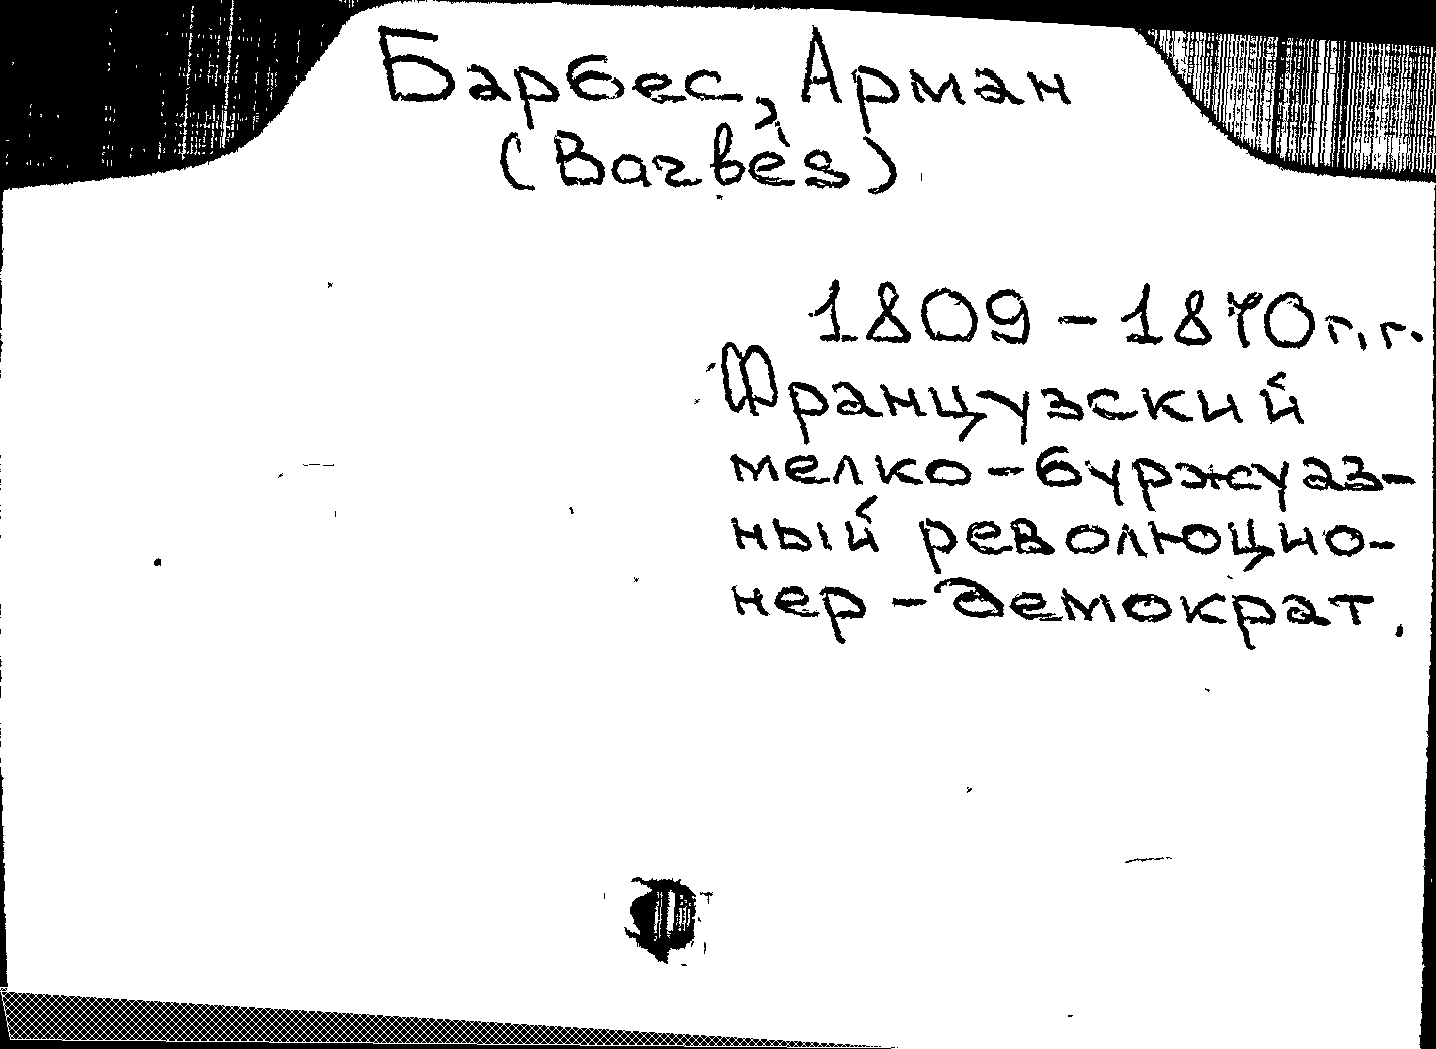 Барбес, Арман
(Barbès)
1809 - 1870 г.г.
Французский
мелко-буржуаз-
ный революцио-
нер - демократ.